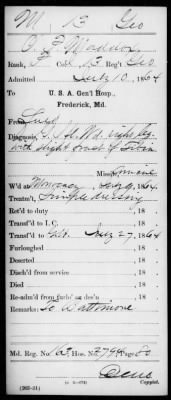 M 13 Geo
O. F. Maddox
Rank, P Co. 13 Reg't Geo
Admitted July 10, 1864
To U. S. A. Gen'l Hosp.,
Frederick, Md.
From Field
Diagnosis, G. S. Wd. right leg
with slight fract of Tibia
Missile,
W'd at Monocacy July 9, 1864.
Treatm't, Simple dressing
Ret'd to duty , 18 .
Transf'd to I. C. , 18 .
Transf'd to July 27, 1864
Furloughed , 18 .
Deserted , 18 .
Disch'd from service , 18 .
Died , 18 .
Re-adm'd from furlo' or des'n , 18 .
Remarks: To Baltimore
Md. Reg. No. 163, Hos. No. Page 80
Copyist.